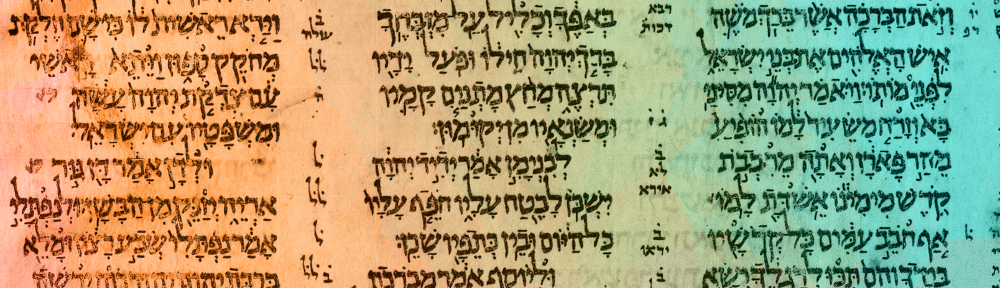 וזאת הברכה אשר ברך משה
איש האלהים את בני ישראל
לפני מותו ויאמר יהוה מסיני
בא וזרח משעיר למו הופיע
מהר פארן ואתה מרבבת
קדש מימינו אשדת למו
אף חבב עמים כל קדשיו
והם תכו לרגלך ישא
באפך וכליל על מזבחך
ברך יהוה חילו ופעל ידיו
תרצה מחץ מתנים קמיו
ומשנאיו מן יקומון׃
לבנימן אמר ידיד יהוה
ישכן לבטח עליו חפף עליו
כל היום ובין כתפיו שכן׃
וליוסף אמר מברכת
וירא ראשית לו כי שם חלקת
מחקק ספון ויתא ראשי
עם צדקת יהוה עשה
ומשפטיו עם ישראל׃
ולדן אמר דן גור
אריה יזנק מן הבשן׃ ולנפתלי
אמר נפתלי שבע רצון ומלא
ברכת יהוה